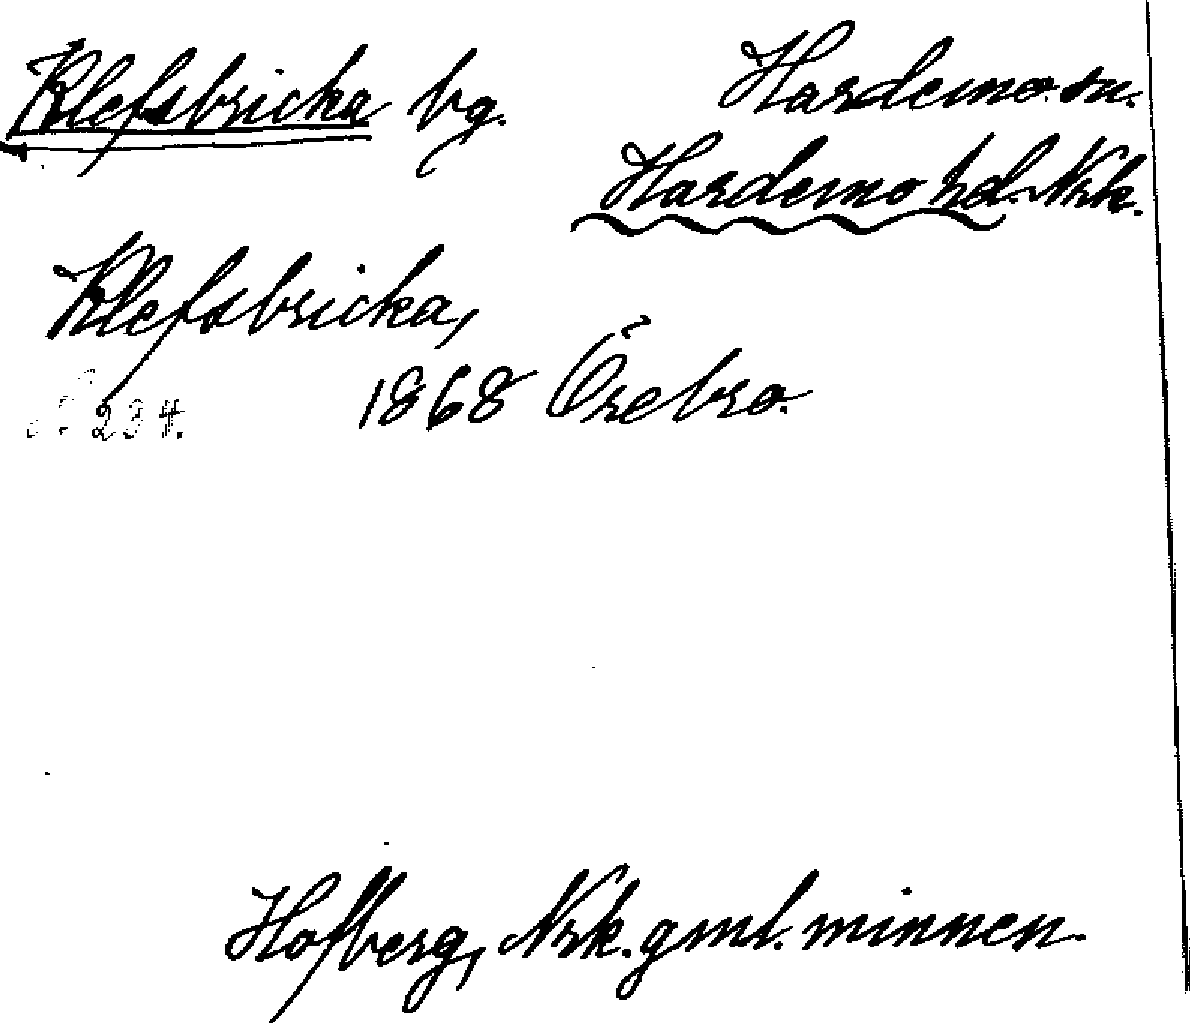 Klefsbricka bg.
Hardemo sn.
Hardemo hd. Nrk.
Klefsbricka,
S. 234.
1868 Örebro.
Hofberg, Nrk. gml. minnen.